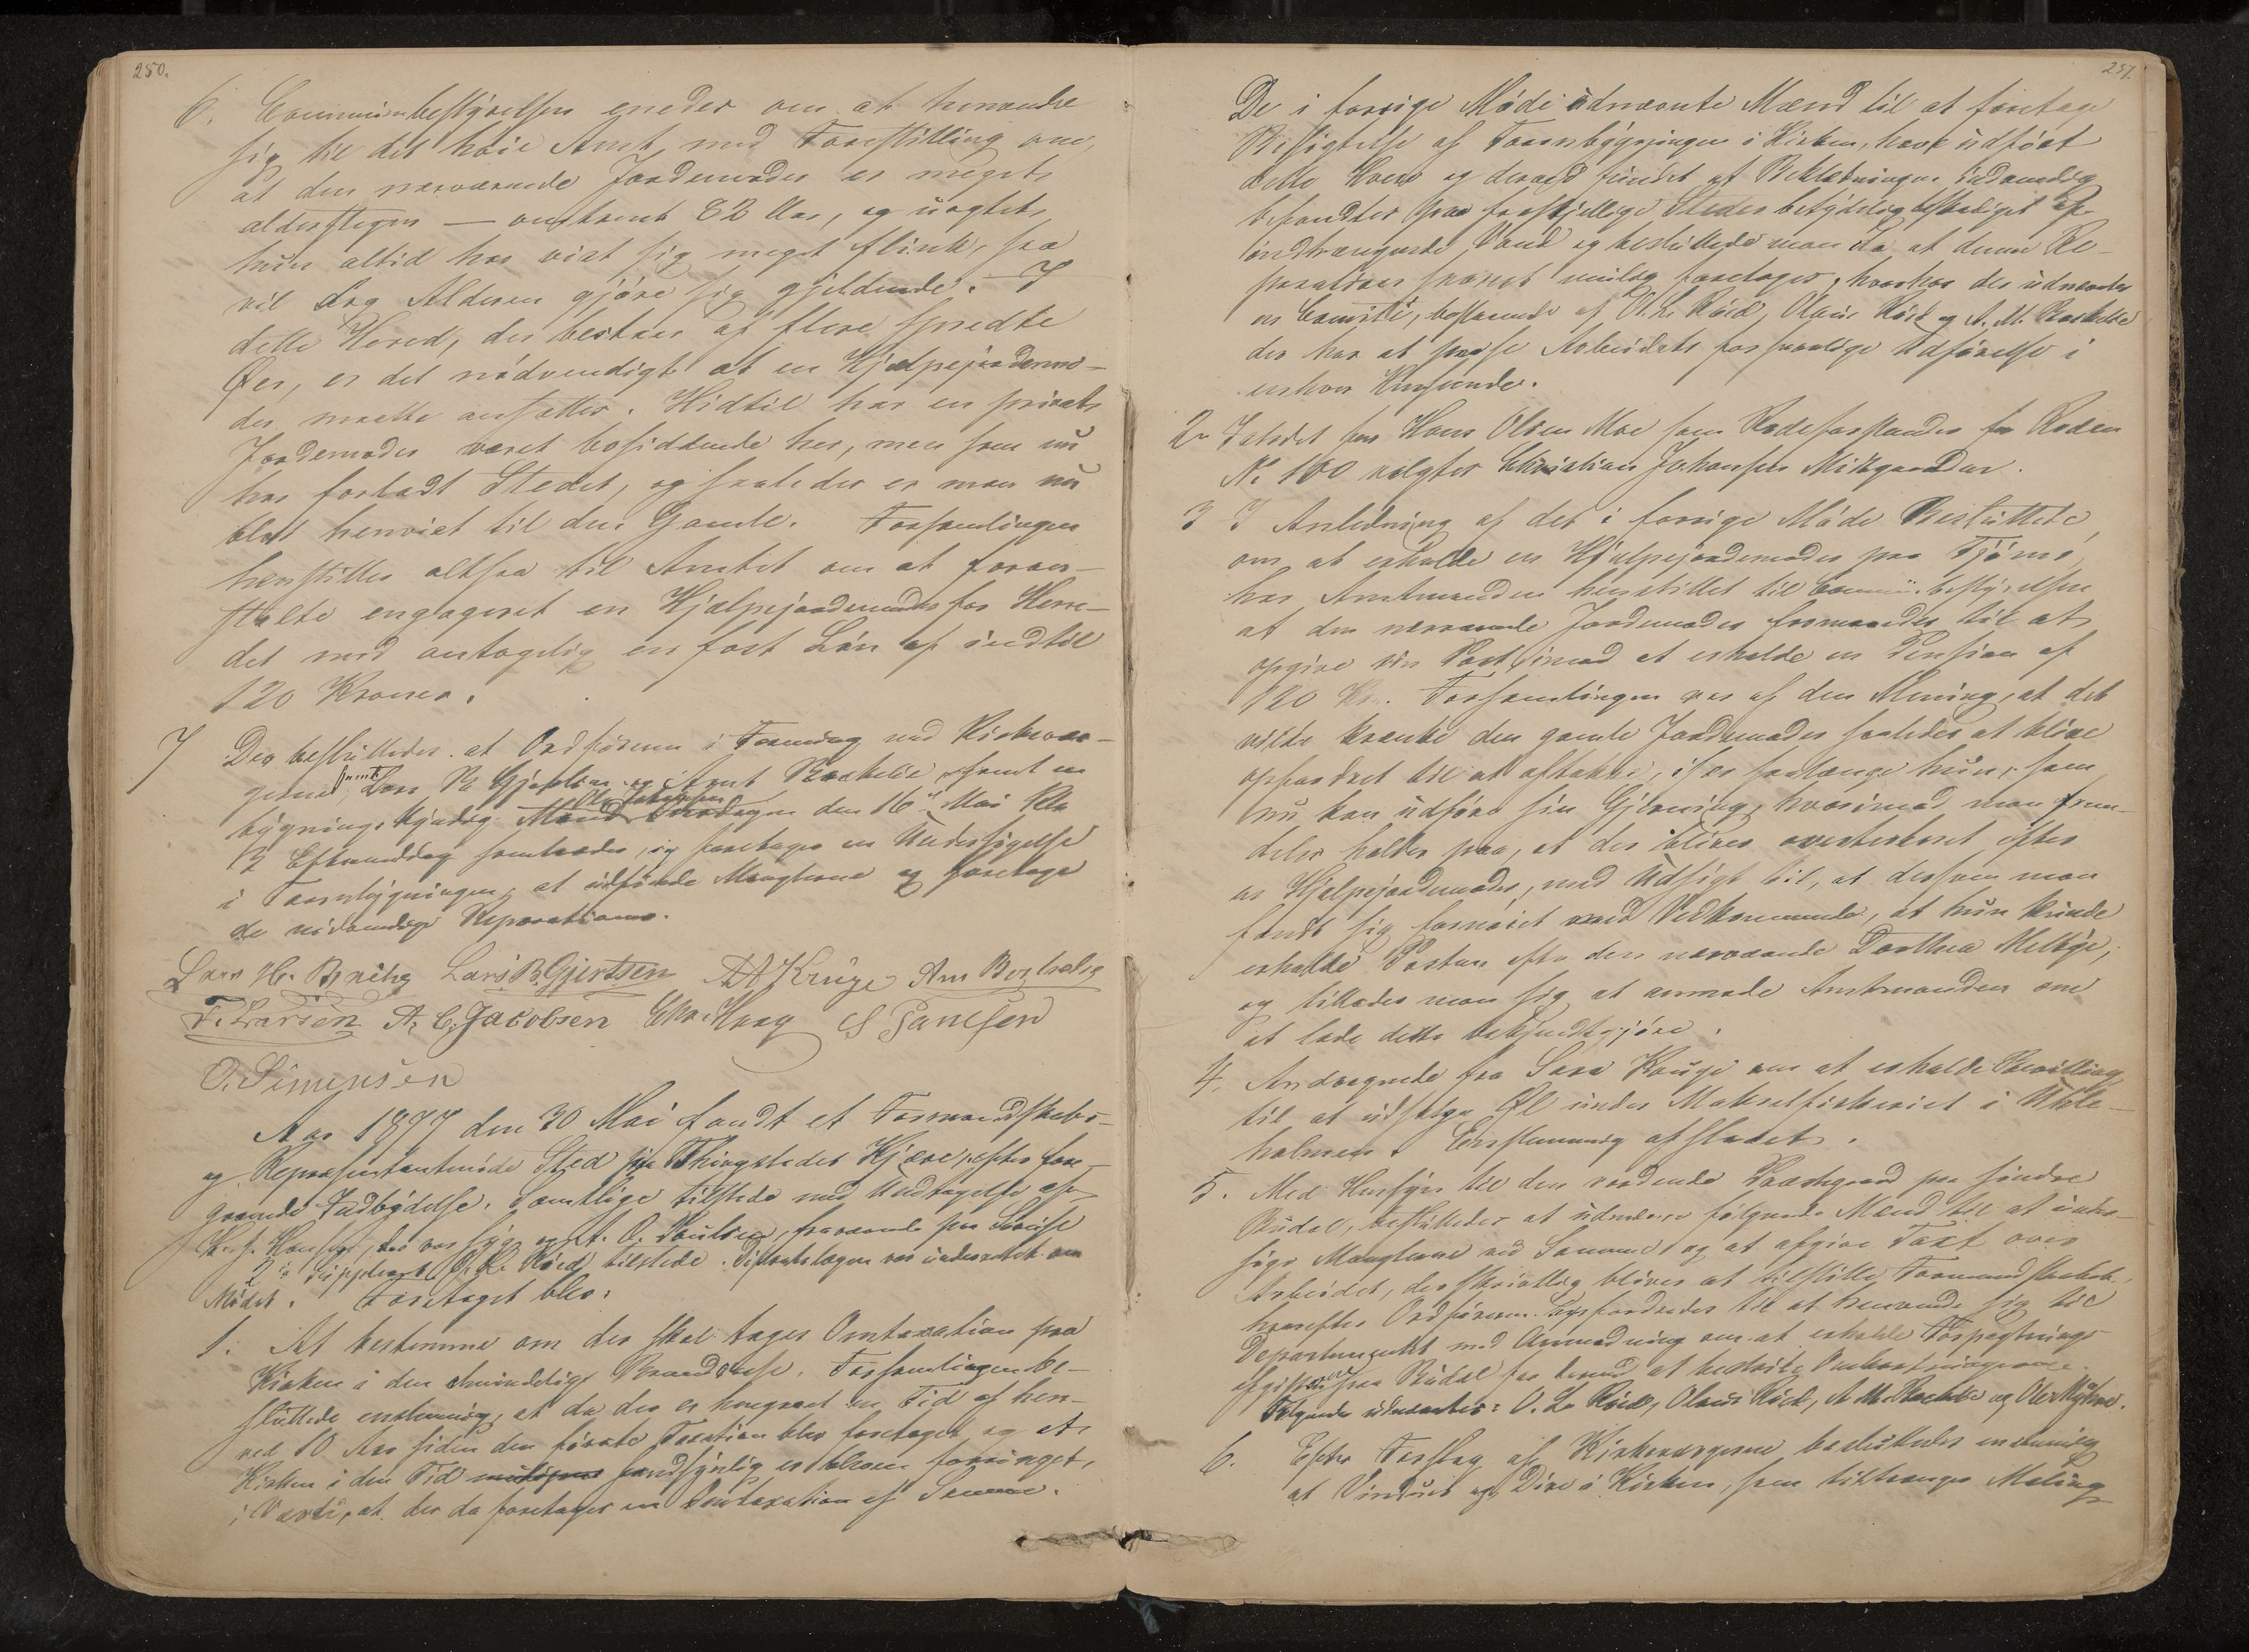 250.
6. Communebestyrelsen enedes om at henvende
sig til det høie Amt med Forestilling om,
at den nærværende Jordemoder er meget
alderstegen — omtrent 62 Aar, og uagtet
hun altid har vist sig meget flink, saa
vil dog Alderen gjøre sig gjeldende. I
dette Hered, der bestaar af flere spredte
Øer, er det nødvendigt at en Hjælpejordemo-
der maatte ansættes. Hidtil har en privat
Jordemoder været bosiddende her, men som nu
har forladt Stedet, og saaledes er man nu
blot henvist til den Gamle. Forsamlingen
henstiller altsaa til Amtet om at foran-
stalte engageret en Hjælpejordemoder for Herre-
det med antagelig en fast Løn af indtil
120 Kroner.
7 Der besluttedes at Ordføreren i Forening med Kirkevær-
gerne, samt Lars B. Gjertsen og Arnt samt en
bygningskyndig Mand den 16de Mai Kl.
12 Eftermiddag sammentræder, og foretager en Undersøgelse
i Taarnbygningen, at udfinde Manglerne og foretage
de nødvendige Reparationer.
Lars H. Lars B. Gjertsen A A Kruge
F. Larsen A. C. Jacobsen Chr. Haag S Jansen
O. Simensen
Aar 1877 den 30 Mai fandt et Formandskabs-
og Repræsentantmøde Sted paa Thingstedet Kjære, efter fore-
gaaende Indbydelse. Samtlige tilstede med Undtagelse af
Hansen, der var syg og A. O. Poulsen, fraværende paa Reise
2den Suppleant O. L. Røed tilstede. Distriktslægen var underrettet om
Mødet. Foretaget blev:
1. At bestemme om der skal tages Omtaxation paa
Kirken i den almindelige Brandkasse. Forsamlingen be-
sluttede enstemmig, at da der er hengaaet en Tid af hen-
ved 10 Aar siden den første Taxation blev foretaget og at
Kirken i den Tid sandsynlig er bleven forringet
i Værdi, at der da foretages en Omtaxation af Samme.
251.
De i forrige Møde udnævnte Mænd til at foretage
Besigtelse af Taarnbygningen i Kirken, have udført
dette Hverv og derved fundet at Beklædningen indvendig
befandtes paa forskjellige Steder betydelig beskadiget af
indtrængende Vand og besluttede man da at denne Re-
paration snarest mulig foretages, hvorhos der udnævntes
en Comité, bestaaende af O. L. Røed, Olaus Røed og A. M.
der har at paase Arbeidets forsvarlige Udførelse i
enhver Henseende.
2. Istedet for Hans Olsen Moe som Rodeforstander for Roden
No 100 valgtes Christian Johansen
3 I Anledning af det i forrige Møde Besluttede,
om at erholde en Hjælpejordemoder paa Tjømø,
har Amtmanden henstillet til Commubestyrelsen
at den nærværende Jordemoder formaaedes til at
opgive sin Post imod at erholde en Pension af
120 Kr. Forsamlingen var af den Mening, at det
vilde krænke den gamle Jordemoder saaledes at blive
opfordret til at aftræde, især saalænge hun, som
nu kan udføre sin Gjerning, hvorimod man frem-
deles holder paa, at der bliver averteret efter
en Hjælpejordemoder, med Udsigt til, at dersom man
fandt sig fornøiet med Vedkommende, at hun kunde
erholde Posten efter den nærværende Dorthea Melbye,
og tillader man sig at anmode Amtmanden om
at lade dette bekjendtgjøre.
4. Andragende fra Sara Kruge om at erholde Bevilling
til at udsælge Øl under Makrelfiskeriet i
holmen. Enstemmig afslaaet.
5. Med Hensyn til den værende Præstegaard paa søndre
Budal, besluttedes at udnævne følgende Mænd til at under-
søge Manglerne ved Samme, og at afgive Taxt over
Arbeidet, der skriftlig bliver at tilstille Formandskabet,
hvorefter Ordføreren opfordredes til at henvende sig til
Departementet med Anmodning om at erholde Forpagtnings-
afgiften paa Budal for derved at bestride Omkostningerne.
Følgende udnævntes: O. L. Røed, Olaus Røed, A M. og Ole
6. Efter Forslag af Kirkeværgerne besluttedes enstemmig
at Vinduer og Døre i Kirken, som tiltrænger Maling